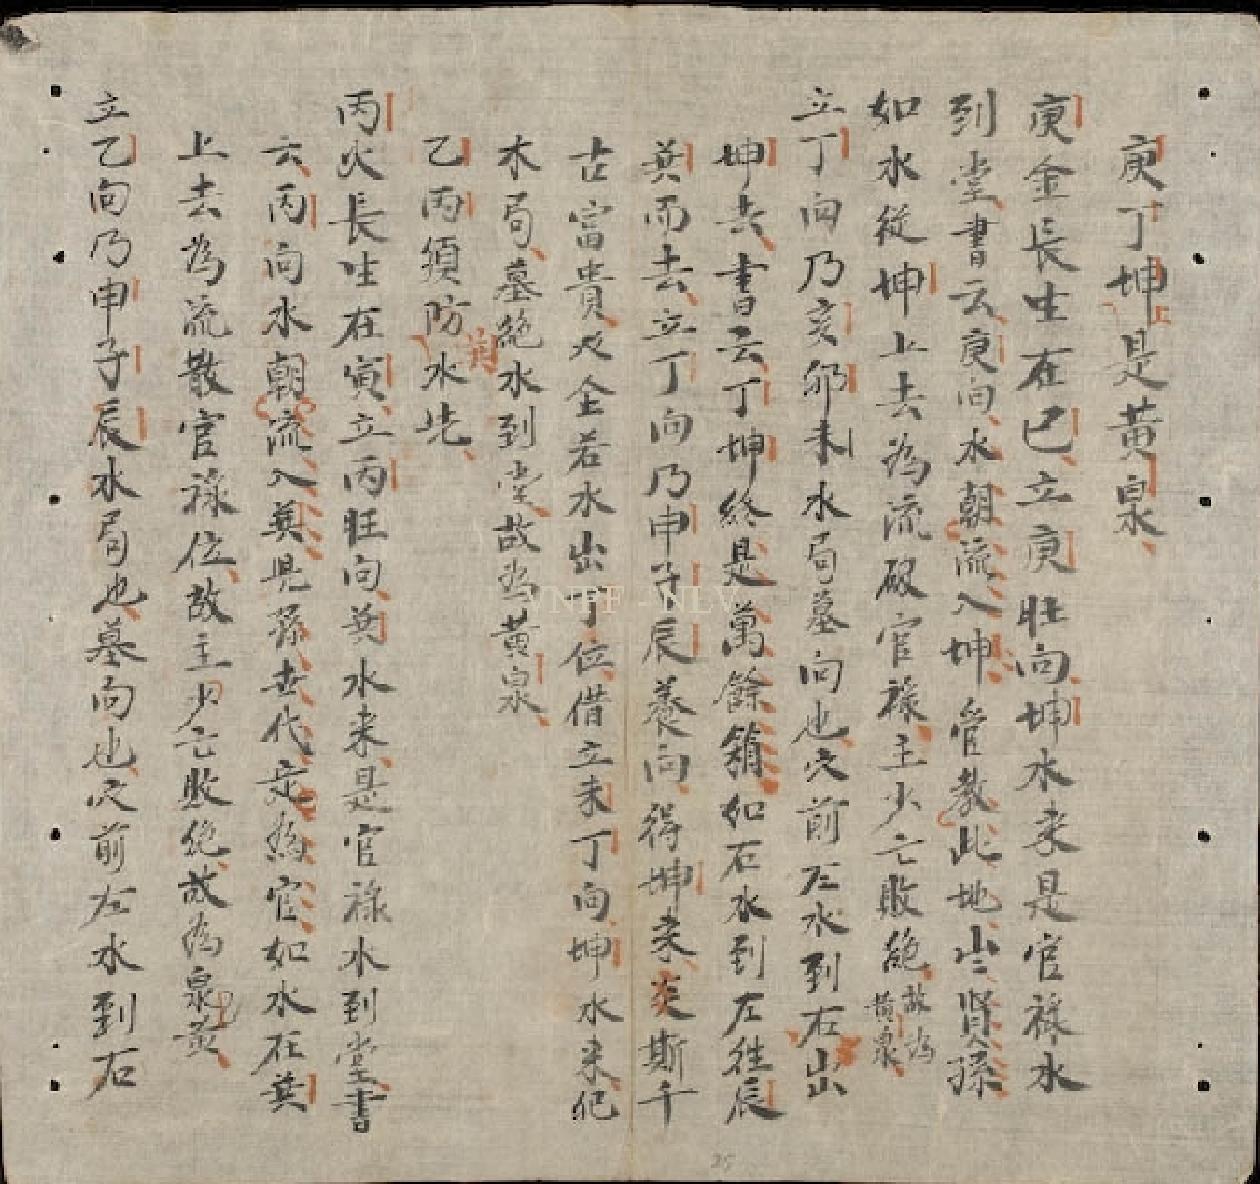 庚丁坤上是黄泉
庚金長生在巳立庚旺向坤水来是官祿水
到堂書云庚向水朝流入坤管教此地出賢孫
如水從坤上去為流破官祿主少亡敗絶故為黄泉
立丁向乃亥卯未水局墓向也穴前左水到右出
坤去書云丁坤終是萬餘箱如右水到左往辰
巽而去立丁向乃申子辰養向得坤来斯千
古富貴全若水出丁位借立未丁向坤水来犯
木局墓絶水到堂故為黄泉
乙丙須防巽水先
丙火長生在寅立丙旺向巽水来是官祿水到堂書
云丙向水朝流入巽兒孫世代定為官如水在巽
上去為流散官祿位故主少亡敗絶故為泉黄
立乙向乃申子辰水局也墓向也穴前左水到右
VNPF - NLV
25